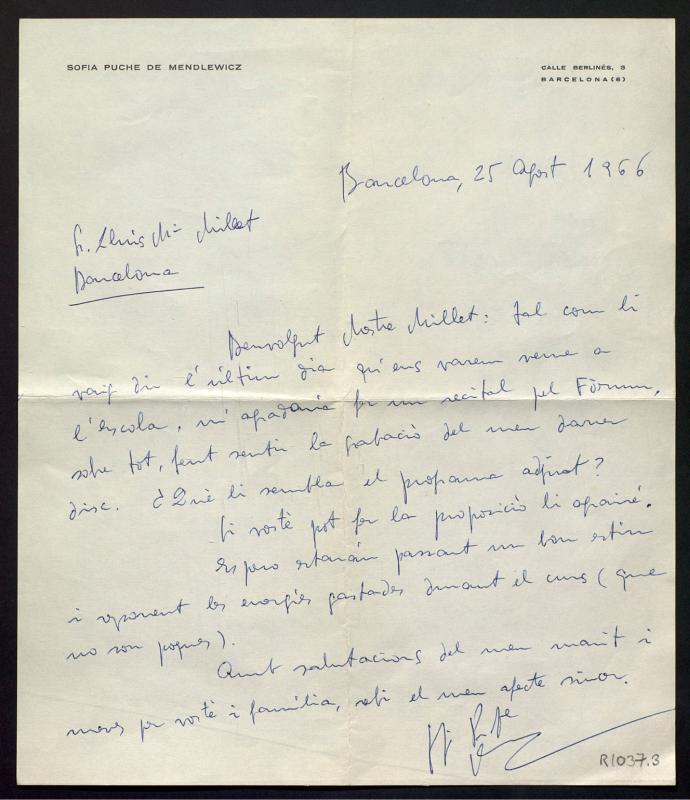 SOFIA PUCHE DE MENDLEWICZ
CALLE BERLINÉS, 3
BARCELONA (6)
Barcelona, 25 Agost 1966
Sr. Lluis Mª Millet
Barcelona
Benvolgut Mestre Millet: tal com li
vaig dir l'últim dia qu'ens varem veure a
l'escola, m'agradaria fer un recital pel Fòrum,
sobre tot, fent sentir la grabació del meu darrer
disc. ¿Què li sembla el programa adjunt?
Si vostè pot fer la proposició li agrairé.
Espero estaràn passant un bon estiu
i reponent les energíes gastades durant el curs (que
no son poques).
Amb salutacions del meu marit i
meves per vostè i família, rebi el meu afecte sincer.
R/037.3